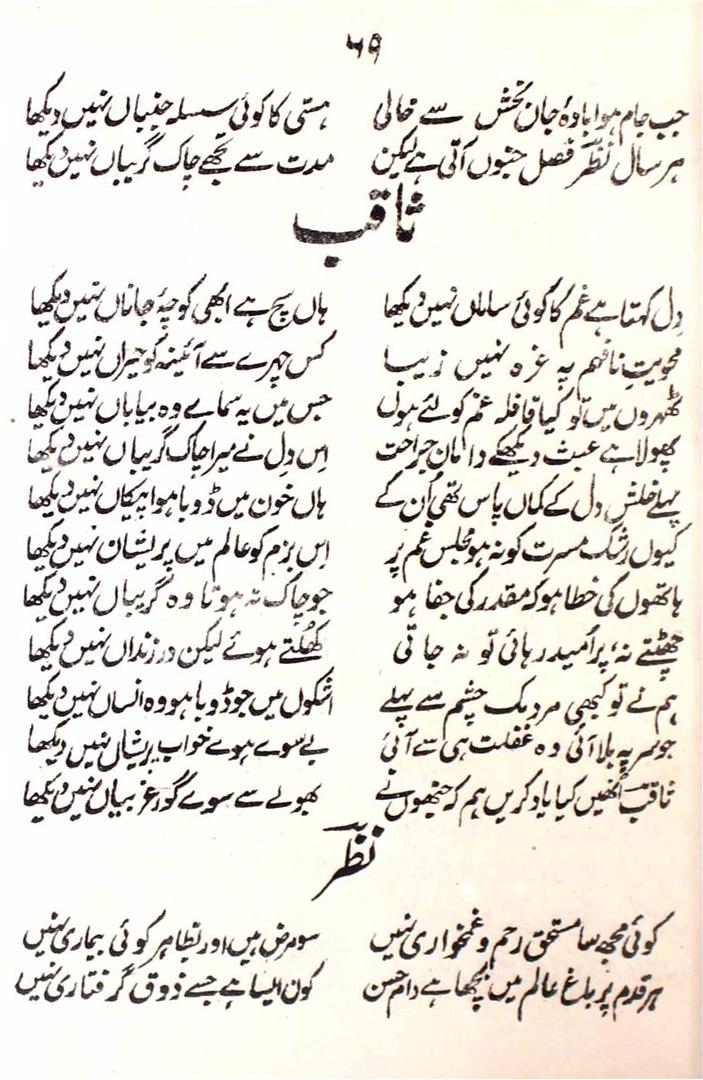 ۶۹
جب جام ہوا بادۂ جان بخش سے خالی ہستی کا کوئی سلسلہ جنباں نہیں دیکھا
ہر سال نظرؔ فصل جنوں آتی ہے لیکن مدت سے تجھے چاک گریباں نہیں دیکھا
ثاقب
دل کہتا ہے غم کا کوئی ساماں نہیں دیکھا ہاں سچ ہے ابھی کوچۂ جاناں نہیں دیکھا
محویتِ نافہم پہ غرہ نہیں زیبا کس چہرے سے آئینہ کو حیراں نہیں دیکھا
ٹھہروں میں تو کیا قافلہ غم کو لئے ہوں جس میں یہ سماے وہ بیاباں نہیں دیکھا
پھولا ہے عبث دیکھکے دامان جراحت اس دل نے میرا چاک گریباں نہیں دیکھا
پہلے خلشِ دل کے کماں پاس تھی اُن کے ہاں خون میں ڈوبا ہوا پیکاں نہیں دیکھا
کیوں رشک مسرت کو نہ ہو مجلس غم پر اس بزم کو عالم میں پریشان نہیں دیکھا
ہاتھوں کی خطا ہو کہ مقدر کی جفا ہو جو چاک نہ ہوتا وہ گریباں نہیں دیکھا
چھٹتے نہ، پر اُمید رہائی تو نہ جاتی کھُلتے ہوئے لیکن در زنداں نہیں دیکھا
ہم نے تو کبھی مردمک چشم سے پہلے اشکوں میں جو ڈوبا ہو وہ انساں نہیں دیکھا
جو سر پہ بلا آئی وہ غفلت ہی سے آئی بے سوے ہوے خواب پریشاں نہیں دیکھا
ثاقبؔ اُنھیں کیا یاد کریں ہم کہ جنھوں نے بھولے سے سوے گور غریباں نہیں دیکھا
نظرؔ
کوئی مجھ سا مستحق رحم و غمخواری نہیں سو مرض ہیں اور بظاہر کوئی بیماری نہیں
ہر قدم پر باغ عالم میں بچھا ہے دام حسن کون ایسا ہے جسے ذوق گرفتاری نہیں